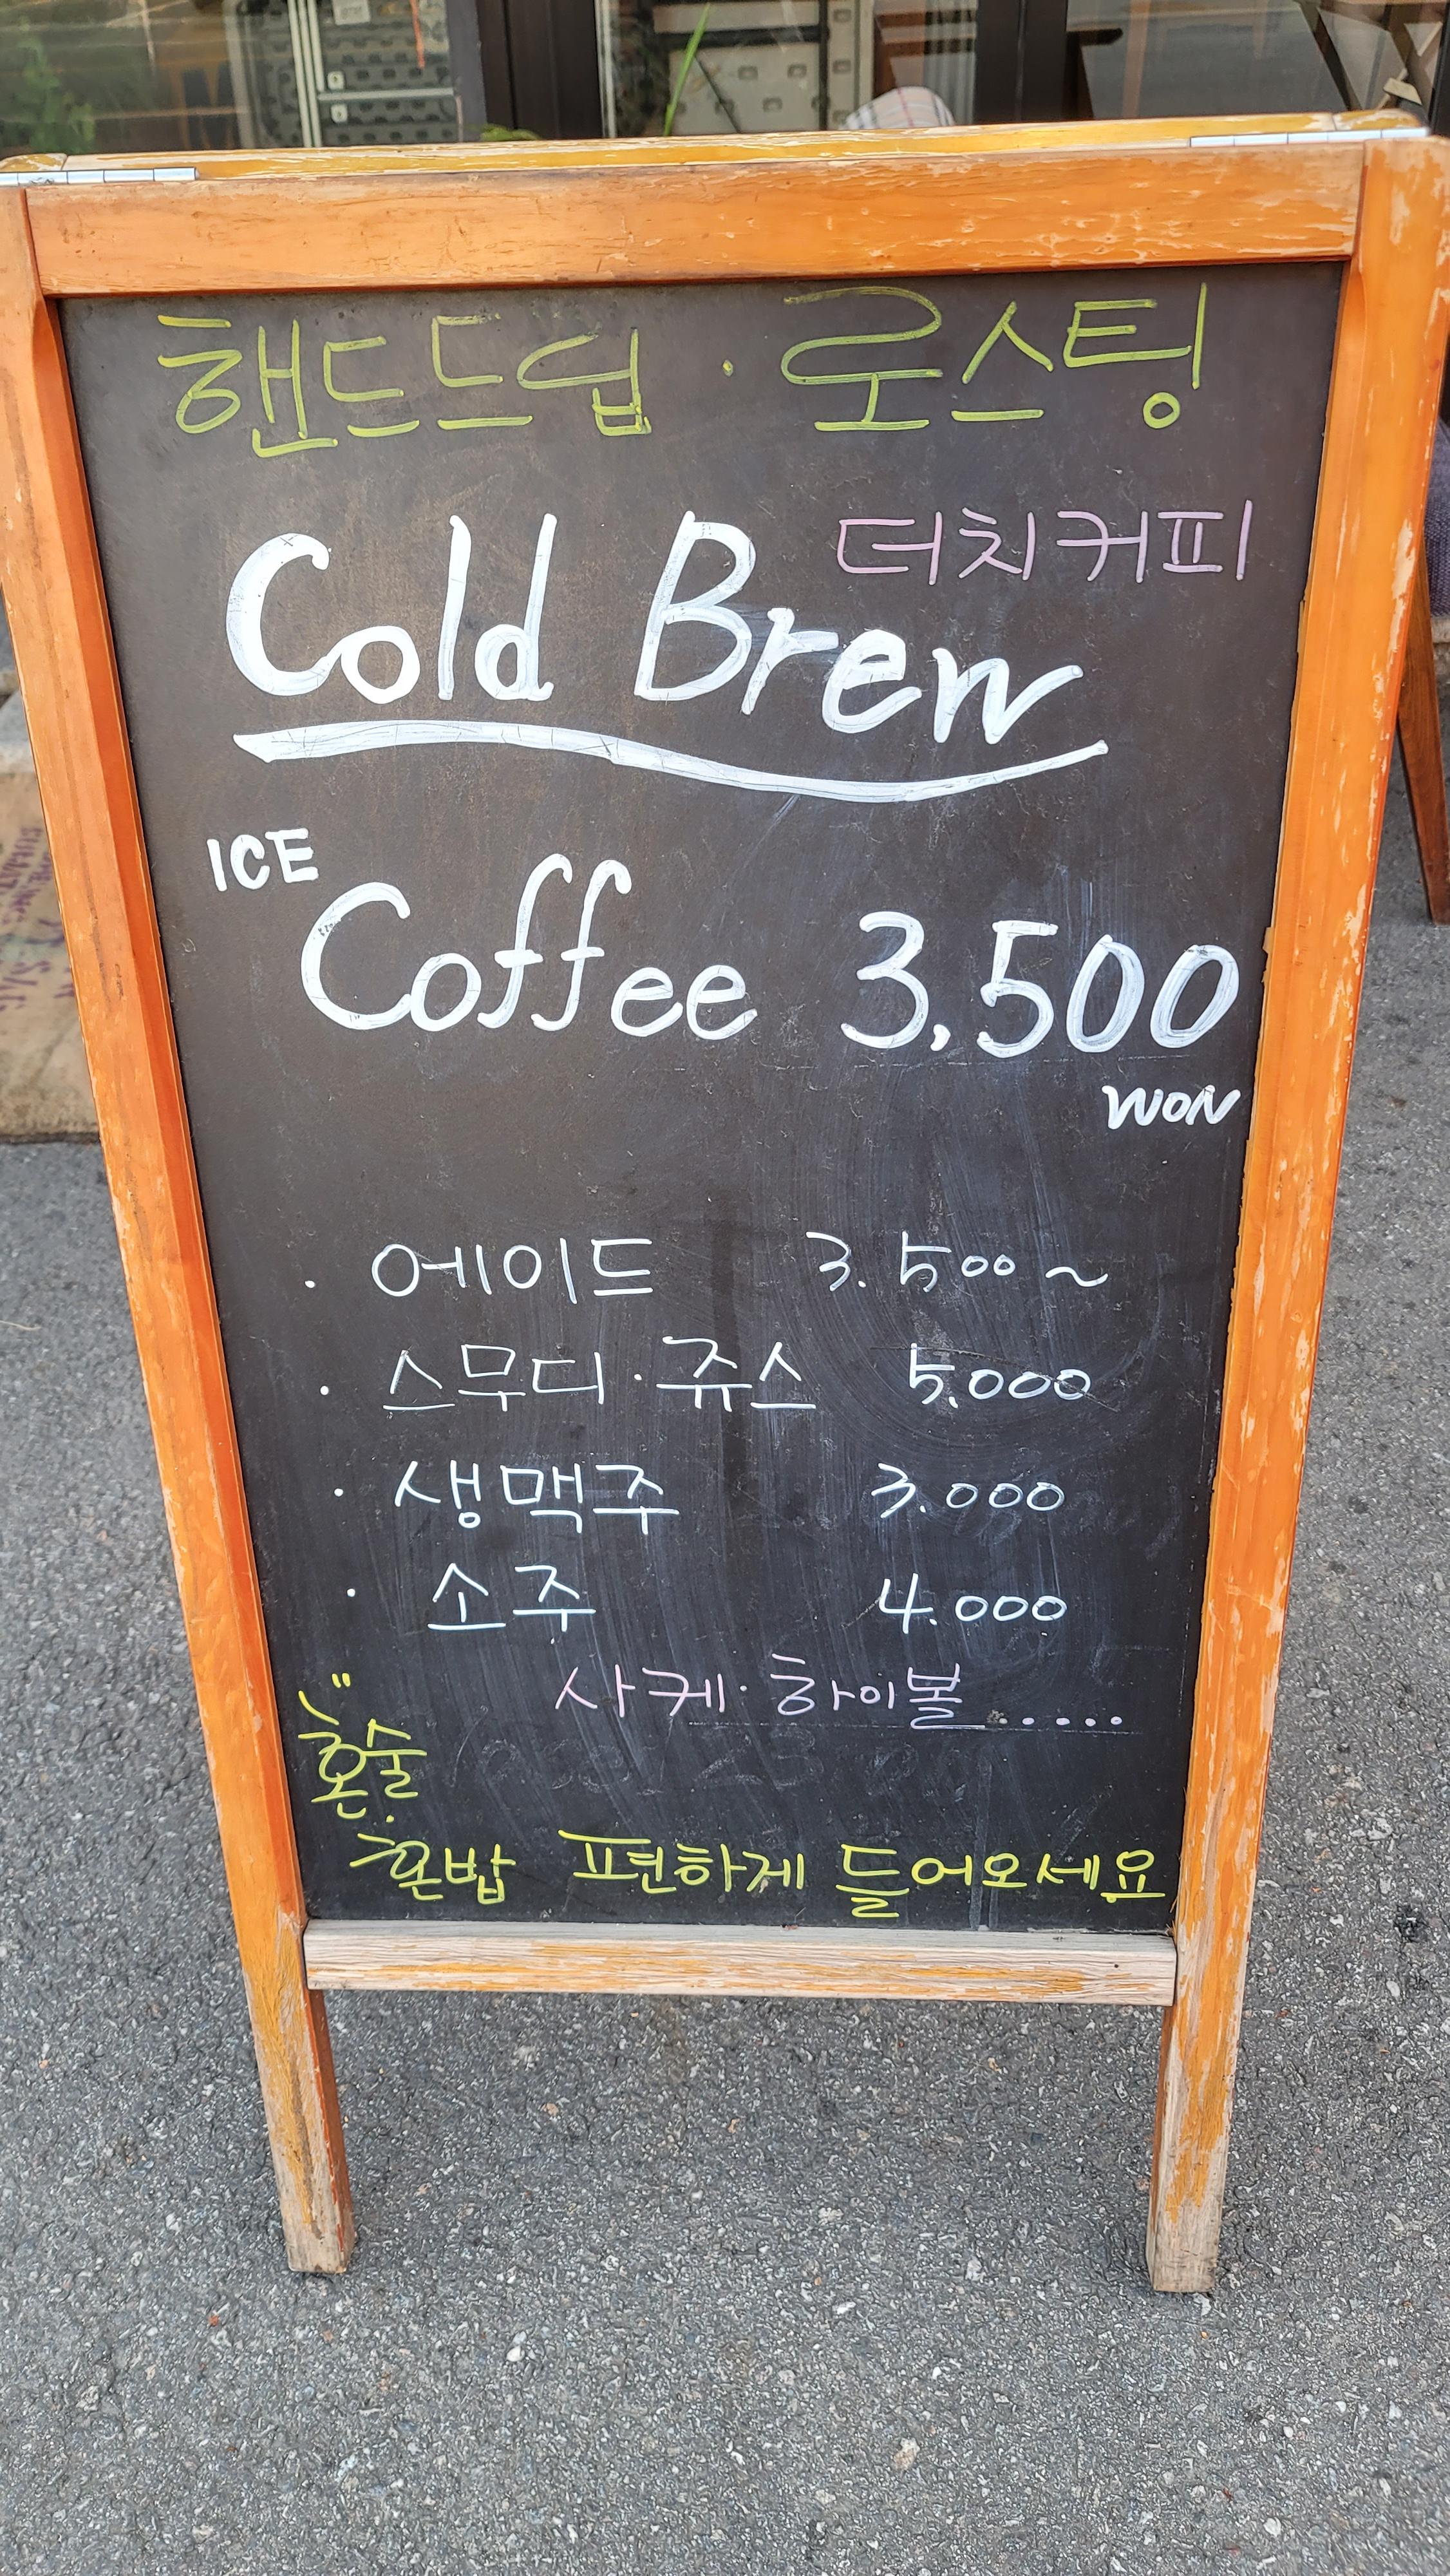 핸드드립 · 로스팅
더치커피
Cold Brew
ICE
Coffee 3,500
WON
· 에이드 3.500 ~
· 스무디 · 쥬스 5,000
· 생맥주 3.000
· 소주 4.000
사케 · 하이볼......
혼술
혼밥 편하게 들어오세요